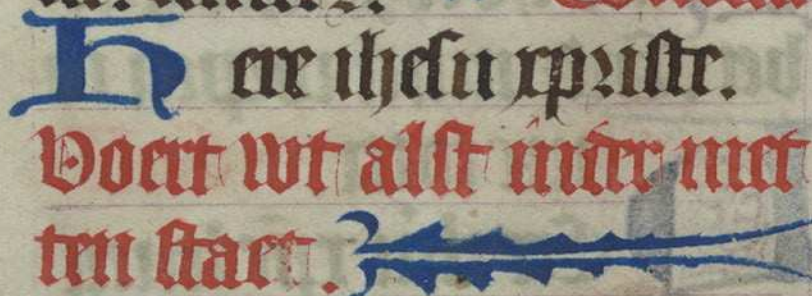 Here ihesu xpriste.
Voert wt alst inder met
ten staet.